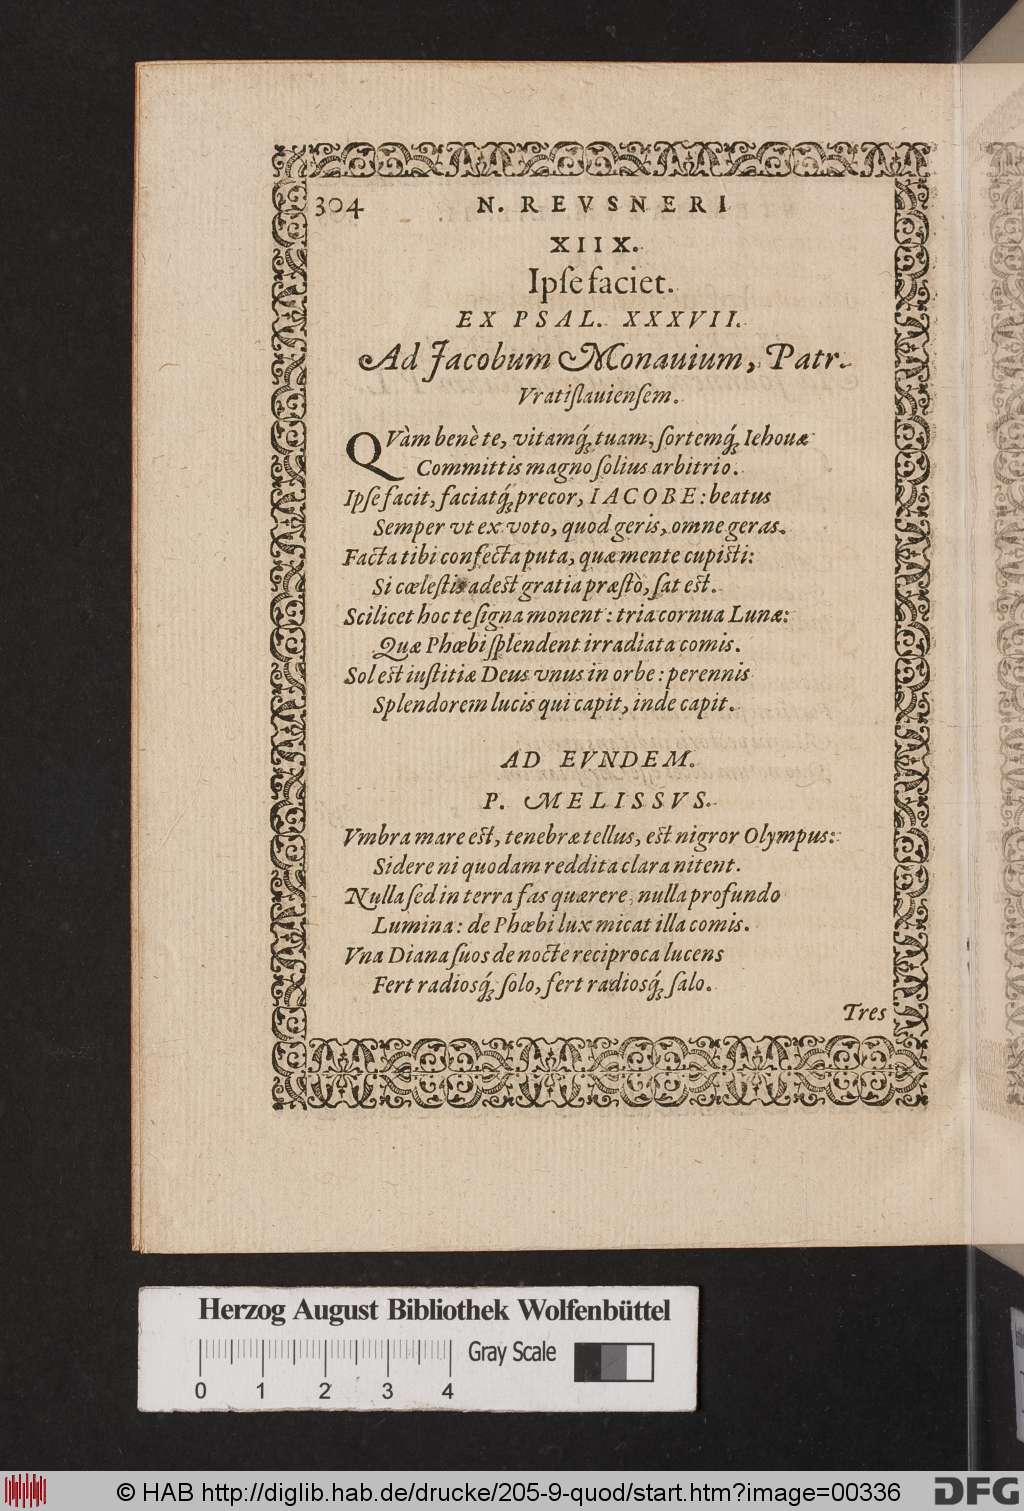 304 N. REVSNERI
XIIX.
Ipſe faciet.
EX PSAL. XXXVII.
Ad Jacobum Monauium, Patr.
Vratiſlauienſem.
QVàm benè te, vitamq́; tuam, ſortemq́; Iehouæ
Committis magno ſolius arbitrio.
Ipſe facit, faciatq́; precor, IACOBE: beatus
Semper vt ex voto, quod geris, omne geras.
Facta tibi confecta puta, quæ mente cupisti:
Si cœleſtis adest gratia præſtò, ſat est.
Scilicet hoc te ſigna monent: tria cornua Lunæ:
Quæ Phœbi ſplendent irradiata comis.
Sol est iuſtitiæ Deus vnus in orbe: perennis
Splendorem lucis qui capit, inde capit.
AD EVNDEM.
P. MELISSVS.
Vmbra mare est, tenebræ tellus, est nigror Olympus:
Sidere ni quodam reddita clara nitent.
Nulla ſed in terra fas quærere, nulla profundo
Lumina: de Phœbi lux micat illa comis.
Vna Diana ſuos de nocte reciproca lucens
Fert radiosq́; ſolo, fert radiosq́; ſalo.
Tres
Herzog August Bibliothek Wolfenbüttel
Gray Scale
0 1 2 3 4
© HAB http://diglib.hab.de/drucke/205-9-quod/start.htm?image=00336 DFG